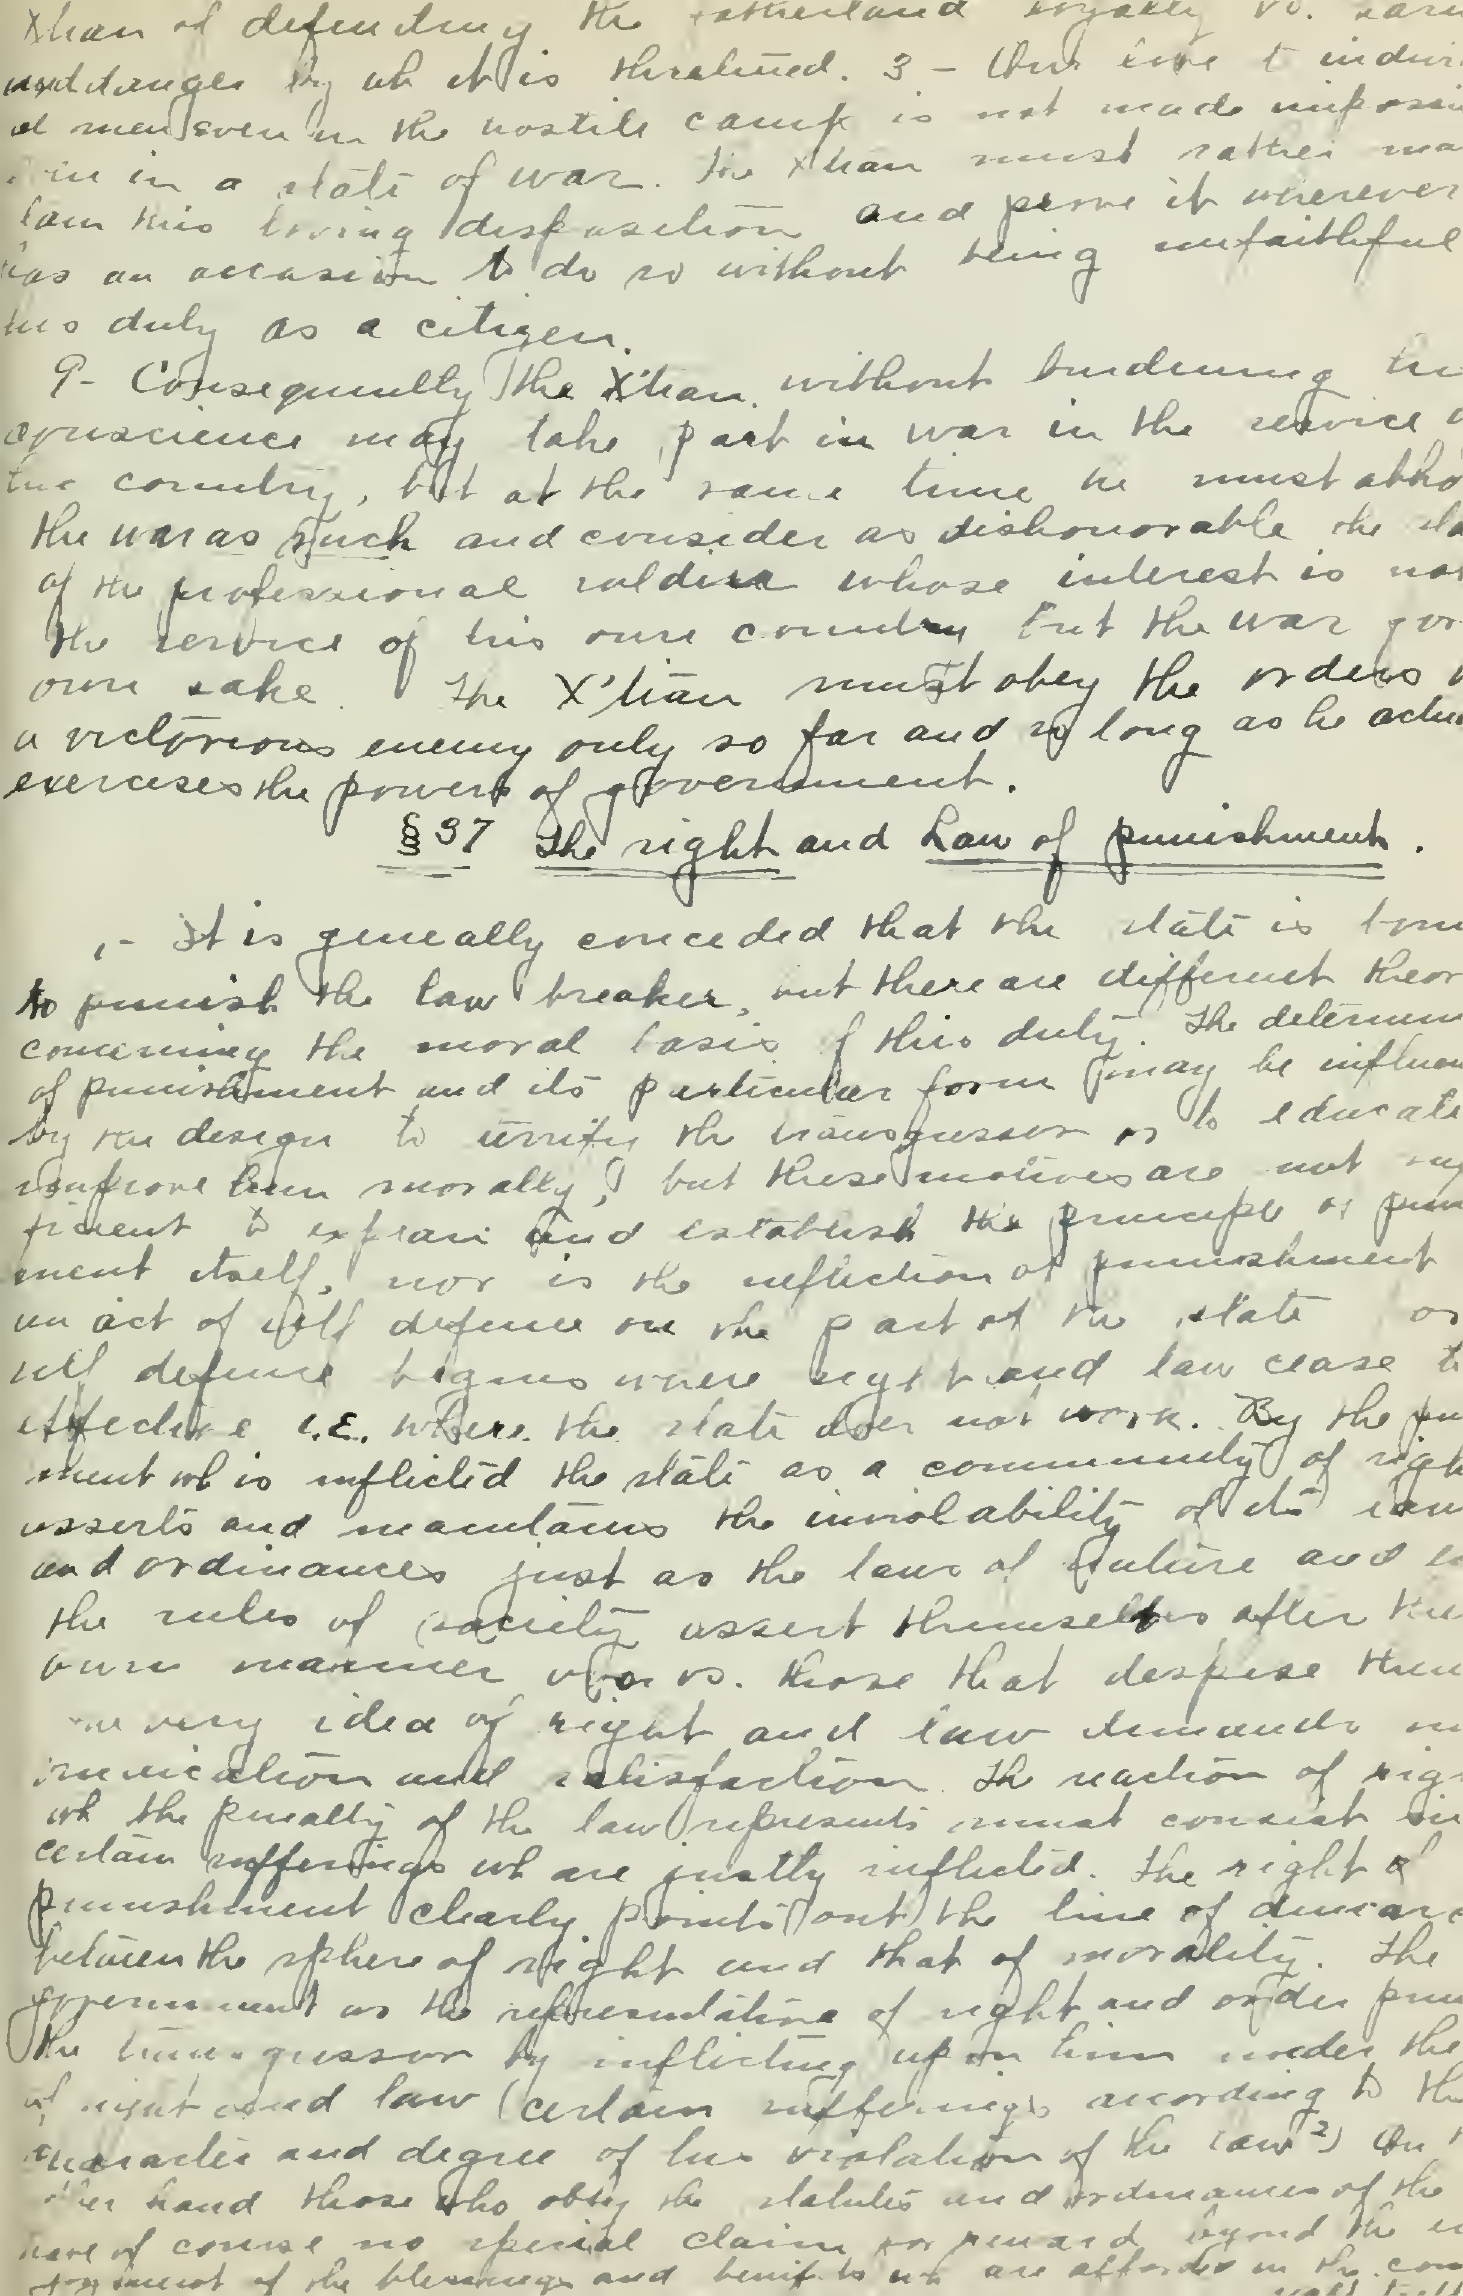 X'tian of defending the fatherland loyally vs.
and danger by wh it is threatened. 3 – Our love t
men even in the hostile camp is not made
in a state of war. The X'tian must rather
this loving disposition and prove it wherever
has an occasion to do so without being unfaithful
his duty as a citizen.
9– Consequently the X'tian without burdening
conscience may take part in war in the service
the country, but at the same time he must
the war as such and consider as dishonorable the
of the professional soldier whose interest is
the service of his own country but the war for
own sake. The X'tian must obey the orders
a victorious enemy only so far and so long as he
exercises the powers of government.
§ 37 The right and Law of punishment.
1,– It is geneally conceded that the state is
to punish the law breaker, but there are different
concerning the moral basis of this duty. The
of punishment and its particular form may be
by the design to terrify the transgressor or to
improve him morally, but these motives are not
ficient to explain and establish the principle of
ment itself, nor is the infliction of punishment
an act of self defence on the part of the state
self defence begins where right and law cease
effective i.e. where the state does not work. By the
ment wh is inflicted the state as a community of
asserts and maintains the inviolability of its
and ordinances just as the laws of nature and
the rules of society assert themselves after
own manner vs. those that despise
very idea of right and law demands
and satisfaction. The reaction of
wh the penalty of the law represents must consist in
certain sufferings wh are justly inflicted. The right of
punishment clearly points out the line of
between the sphere of right and that of morality. The
government as the representative of right and order
the transgressor by inflicting upon him under the
of right and law certain sufferings according to the
character and degree of his violation of the law 2) On
other hand those who obey the statutes and ordinances of the
have of course no special claim for reward beyond the
of the blessings and benefits wh are afforded in the